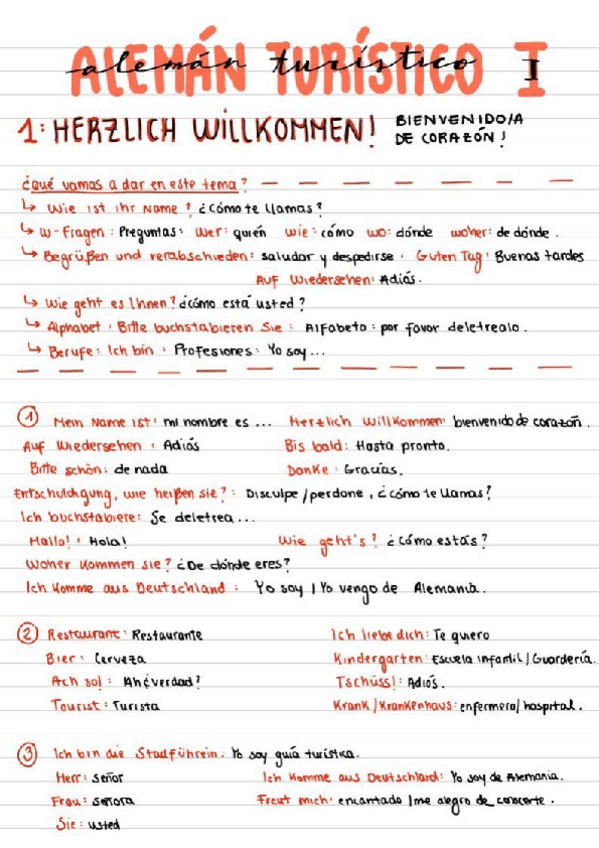 ALEMÁN TURÍSTICO I
alemán turístico I
1: HERZLICH WILLKOMMEN! BIENVENIDO/A
DE CORAZÓN!
¿qué vamos a dar en este tema?
↳ Wie ist ihr Name? ¿Cómo te llamas?
↳ W-Fragen: Preguntas: Wer: quién wie: cómo wo: dónde woher: de dónde.
↳ Begrüßen und verabschieden: saludar y despedirse. Guten Tag: Buenas tardes
Auf Wiedersehen: Adiós.
↳ Wie geht es Ihnen? ¿cómo está usted?
↳ Alphabet: Bitte buchstabieren Sie: Alfabeto: por favor deletrealo.
↳ Berufe: Ich bin: Profesiones: Yo soy...
① Mein Name ist: mi nombre es... Herzlich Willkommen: bienvenido de corazón.
Auf Wiedersehen: Adiós Bis bald: Hasta pronto.
Bitte schön: de nada Danke: Gracias.
Entschuldigung, wie heißen sie?: Disculpe/perdone, ¿cómo te llamas?
Ich buchstabiere: Se deletrea...
Hallo!: Hola! Wie geht's? ¿cómo estás?
Woher kommen sie? ¿De dónde eres?
Ich komme aus Deutschland: Yo soy / Yo vengo de Alemania.
② Restaurant: Restaurante Ich liebe dich: Te quiero
Bier: Cerveza Kindergarten: Escuela infantil / Guardería.
Ach so!: Ah ¿verdad? Tschüss!: Adiós.
Tourist: Turista Krank/Krankenhaus: enfermero/hospital.
③ Ich bin die Stadführein: Yo soy guía turística.
Herr: señor Ich komme aus Deutschland: Yo soy de Alemania.
Frau: señora Freut mich: encantado / me alegro de conocerte.
Sie: usted